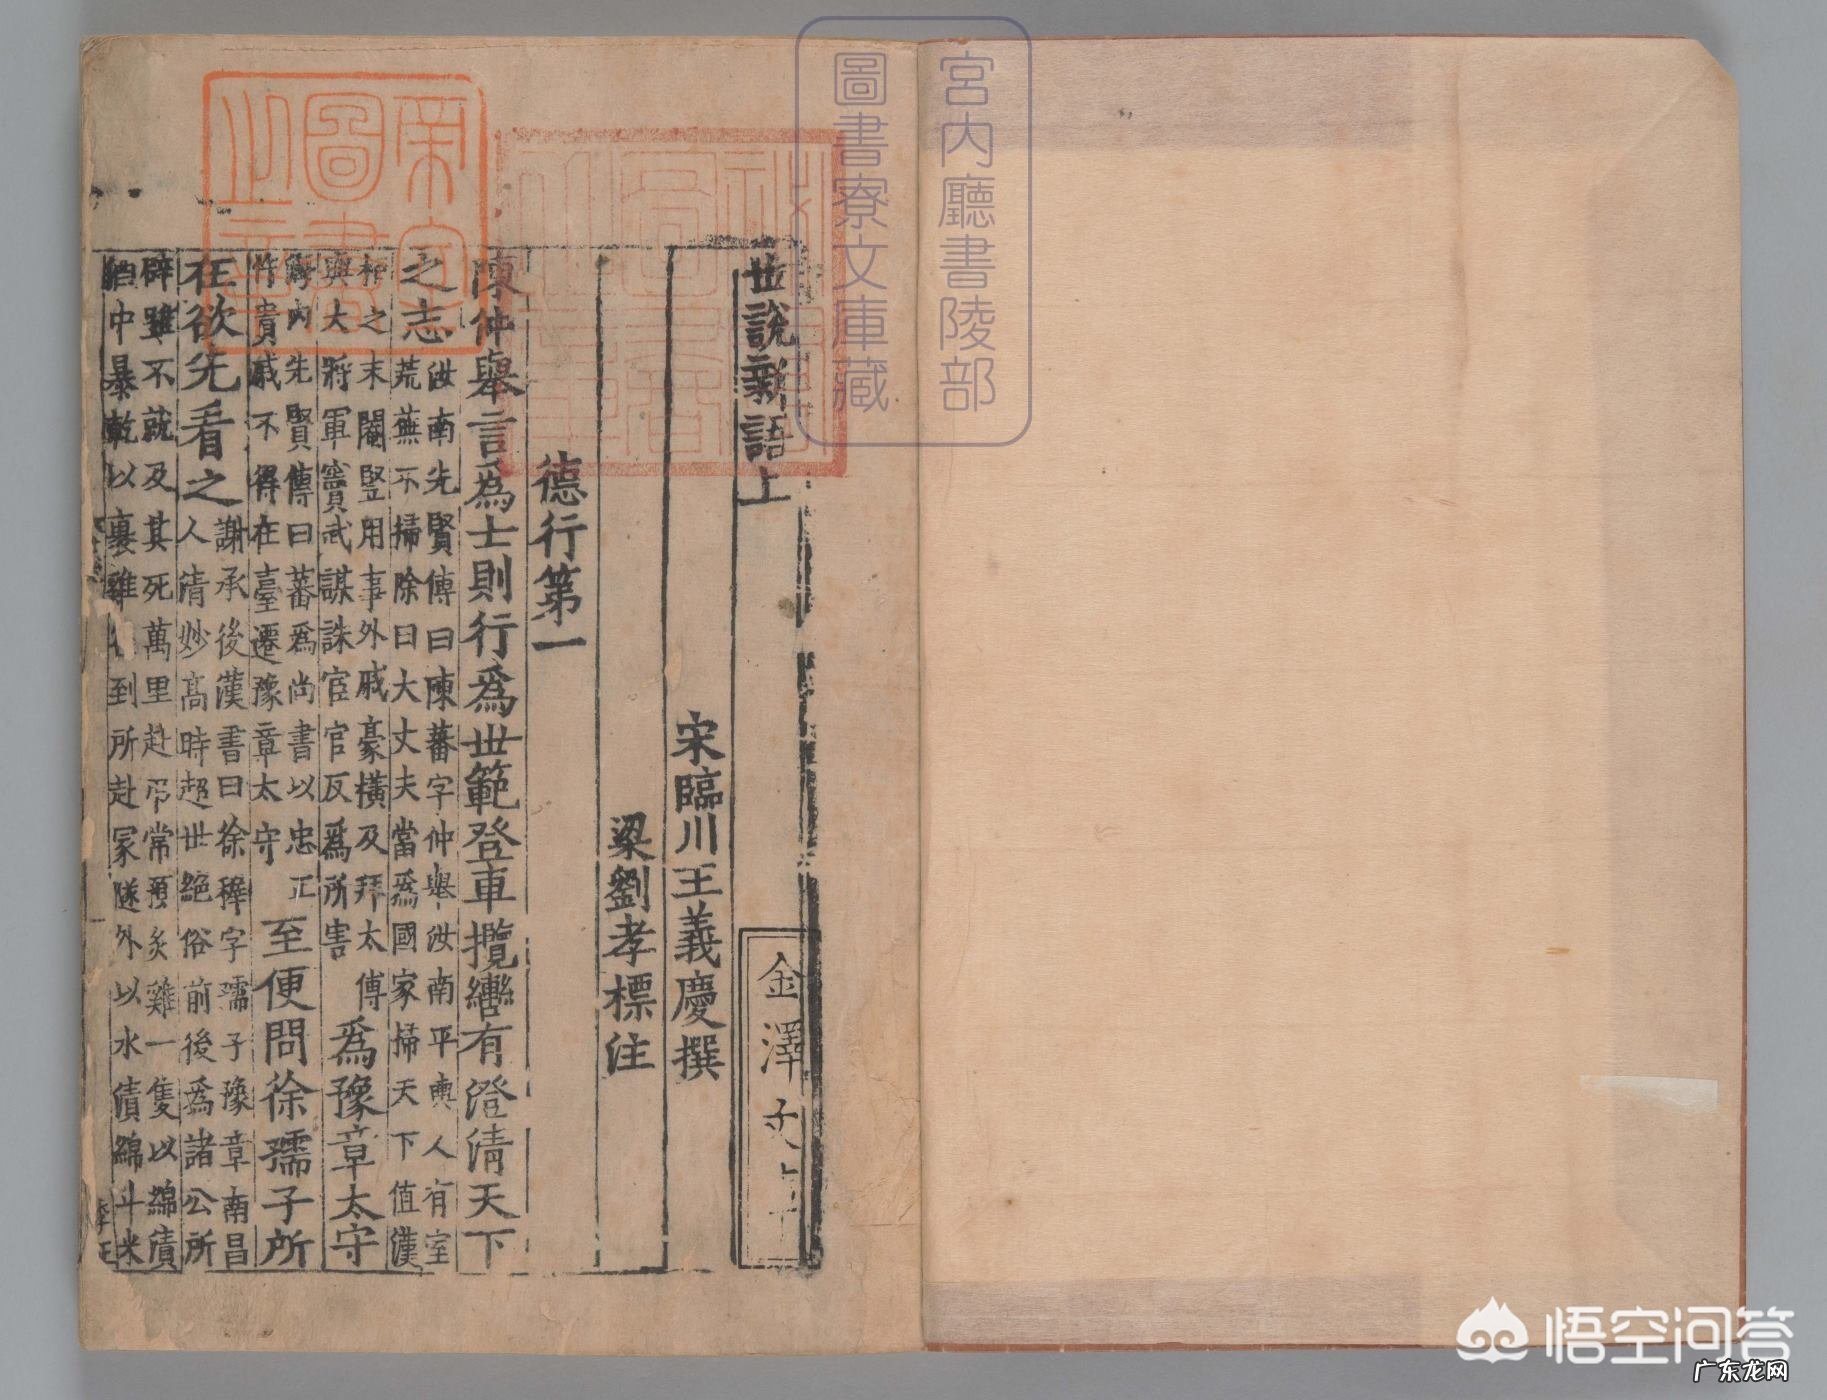 宮內廳書陵部
圖書寮文庫藏
世說新語上
金澤文
宋臨川王義慶撰
梁劉孝標注
德行第一
陳仲舉言爲士則行爲世範登車攬轡有澄清天下
之志
汝南先賢傳曰陳蕃字仲舉汝南平輿人有室
荒蕪不掃除曰大丈夫當爲國家掃天下值漢
桓之末閹豎用事外戚豪橫及拜太傅
與大將軍竇武謀誅宦官反爲所害
爲豫章太守
海內先賢傳曰蕃爲尚書以忠正
忤貴戚不得在臺遷豫章太守
至便問徐孺子所
在欲先看之
謝承後漢書曰徐穉字孺子豫章南昌
人清妙高時超世絕俗前後爲諸公所
辟雖不就及其死萬里赴弔常預炙雞一隻以綿漬
酒中暴乾以裹雞到所赴冢隧外以水漬綿斗米
悟空问答
广东龙网